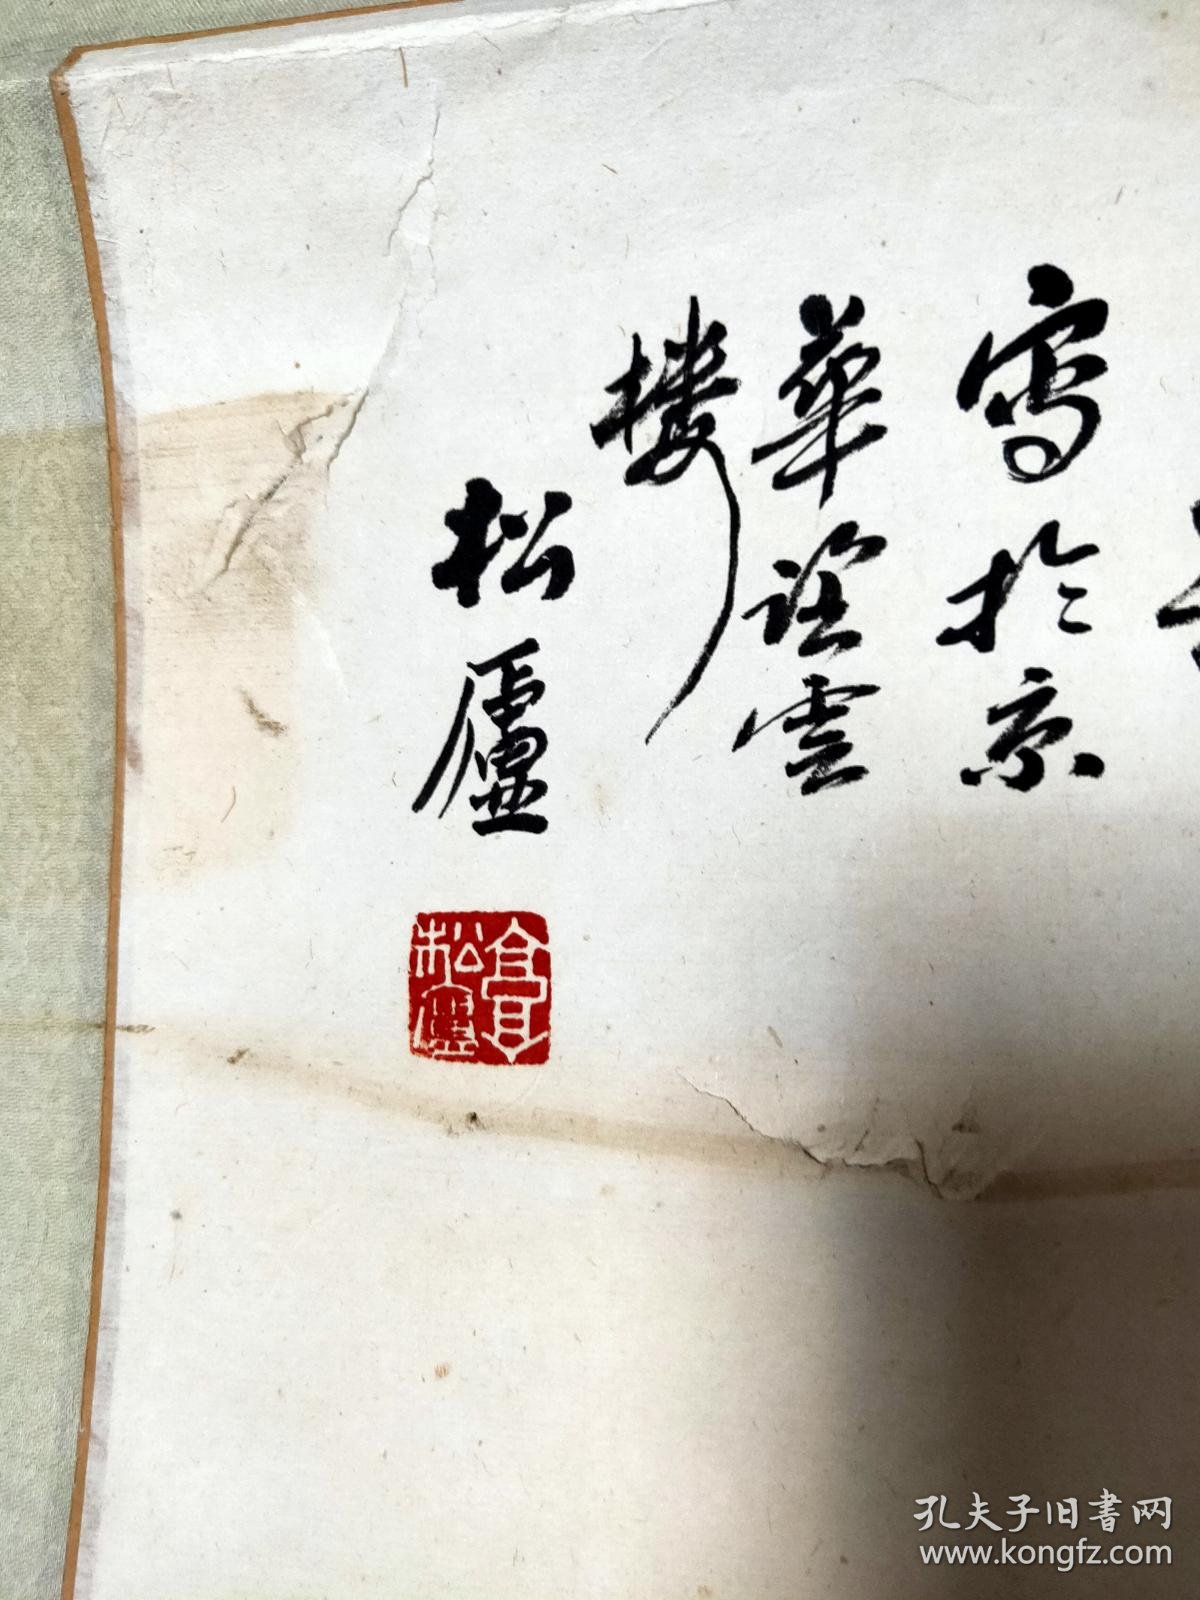 写於京
華谈雲
楼
松廬
松廬
孔夫子旧书网
www.kongfz.com